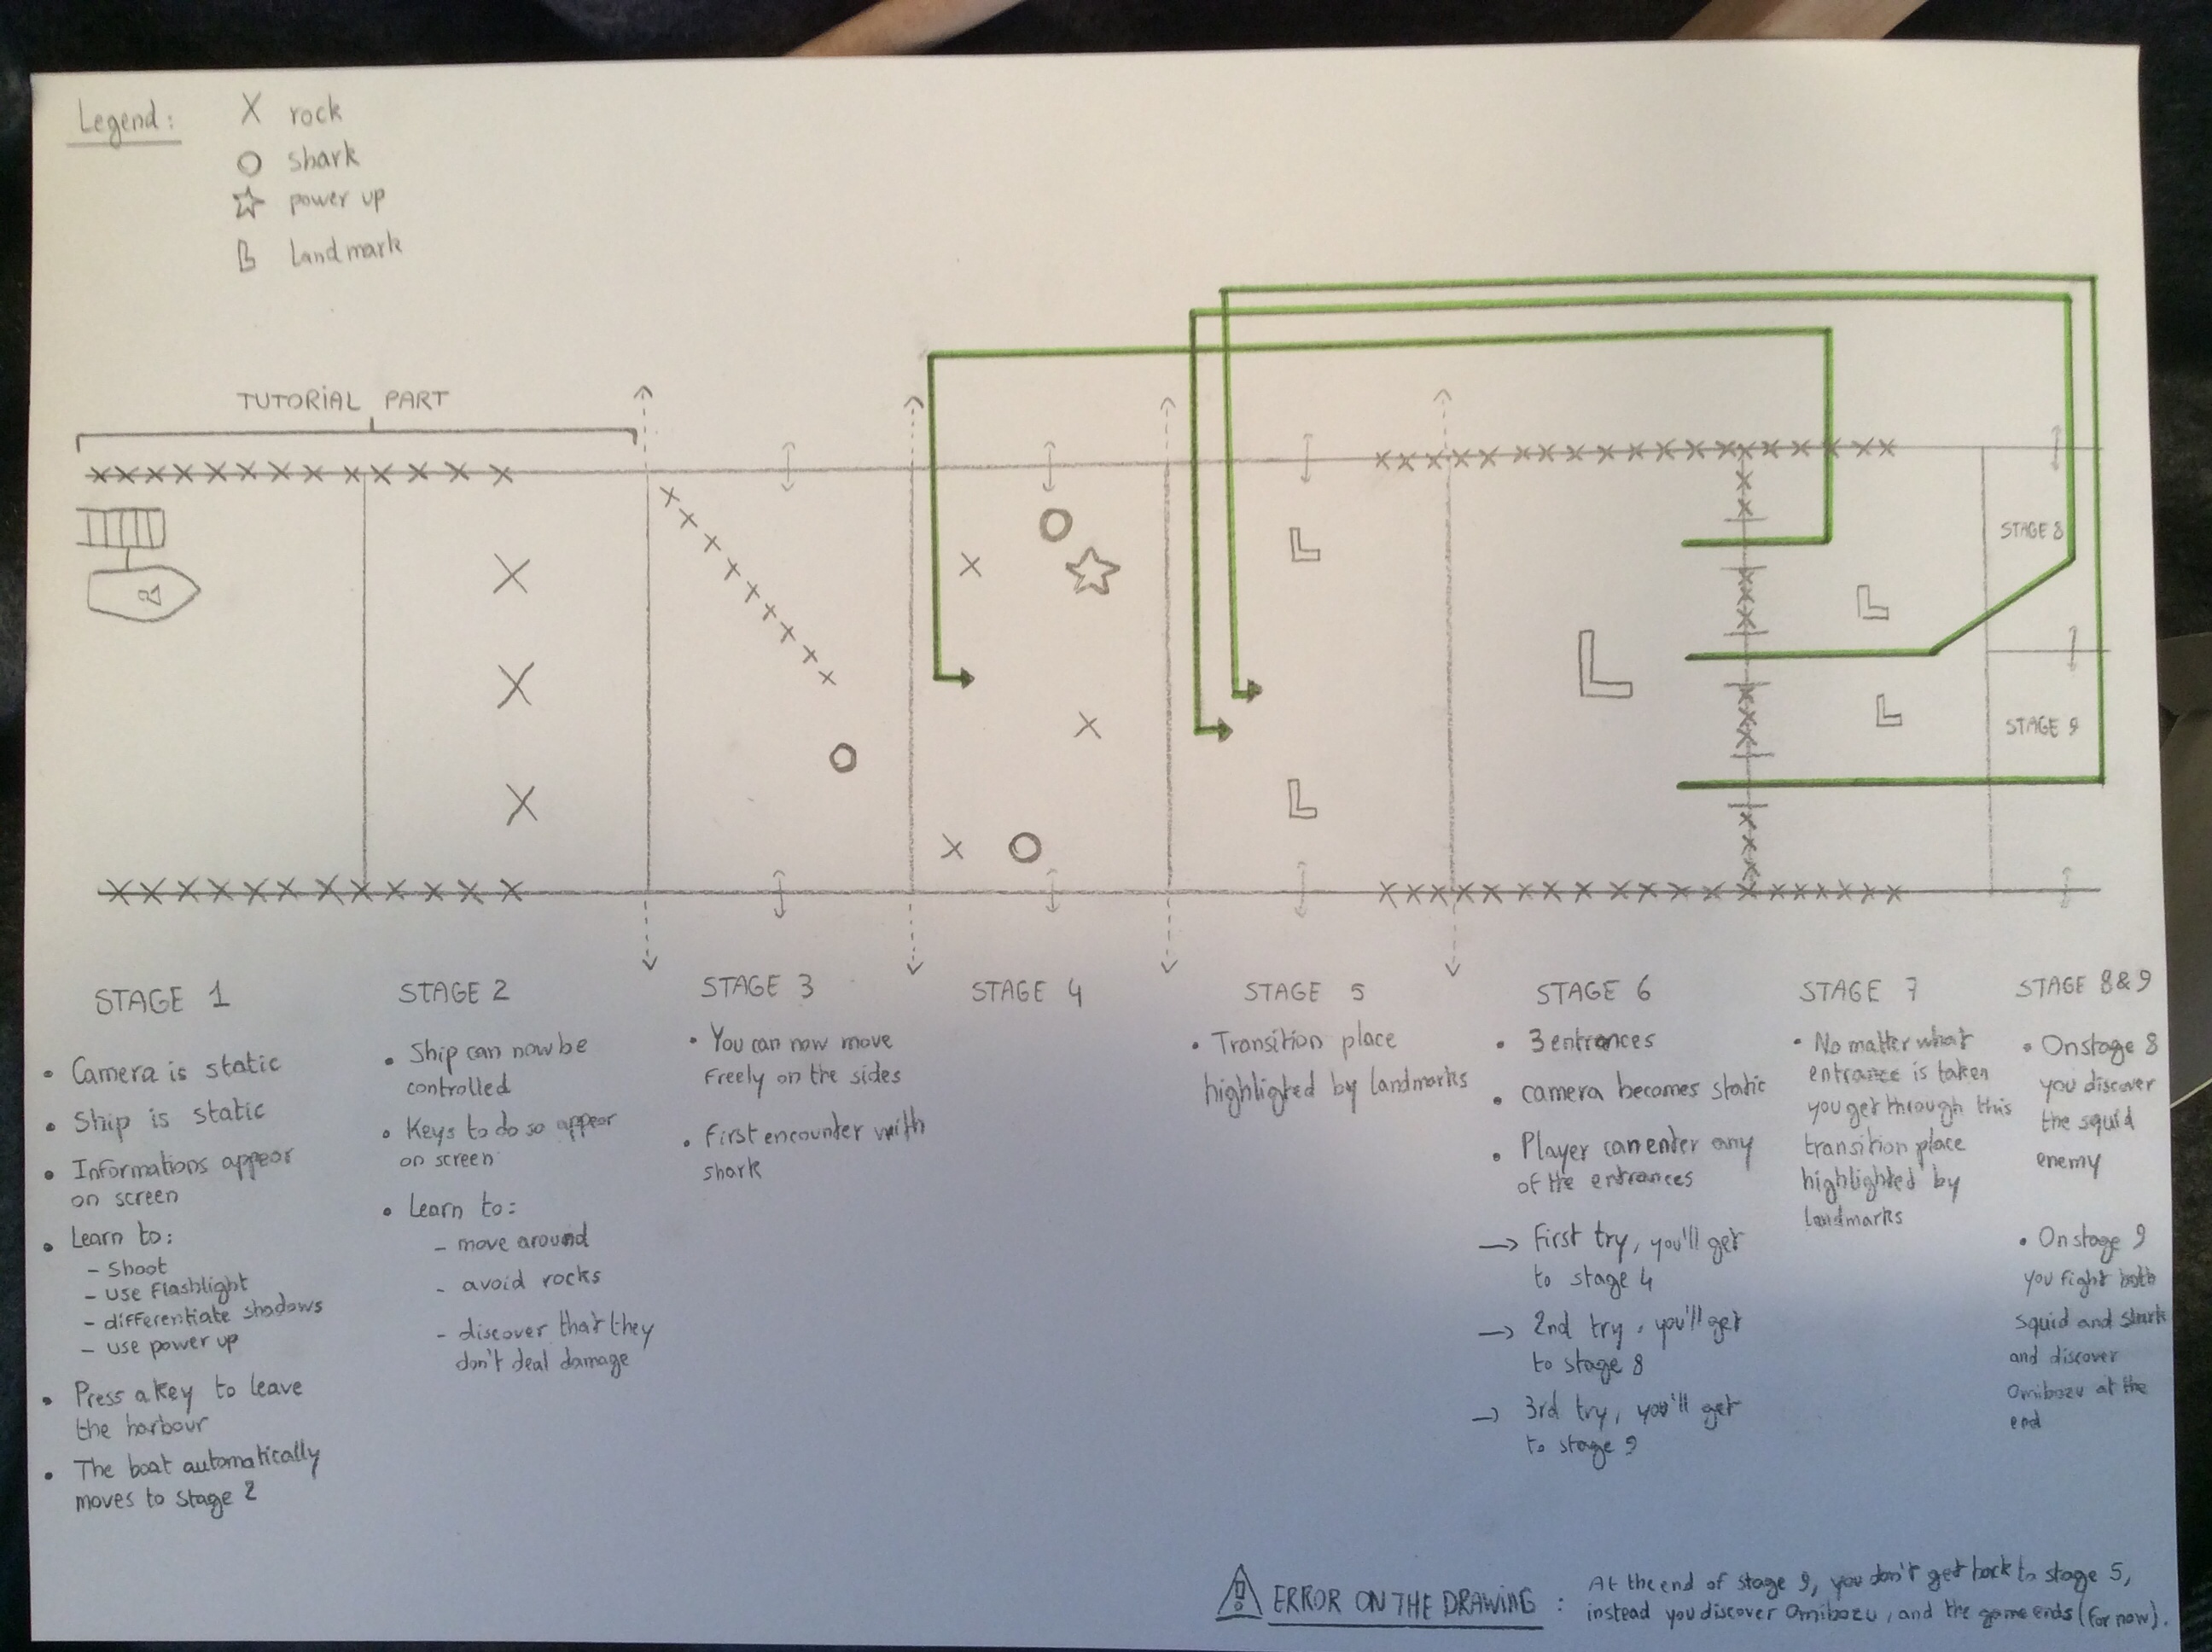 Legend :
X rock
shark
power up
Landmark
TUTORIAL PART
STAGE 8
STAGE 9
STAGE 1
• Camera is static
• Ship is static
• Informations appear
on screen
• Learn to:
- Shoot
- use flashlight
- differentiate shadows
- use power up
• Press a key to leave
the harbour
• The boat automatically
moves to stage 2
STAGE 2
• Ship can now be
controlled
• Keys to do so appear
on screen
• Learn to:
- move around
- avoid rocks
- discover that they
don't deal damage
STAGE 3
• You can now move
freely on the sides
• First encounter with
shark
STAGE 4
STAGE 5
• Transition place
highlighted by landmarks
STAGE 6
• 3 entrances
• camera becomes static
• Player can enter any
of the entrances
→ First try, you'll get
to stage 4
→ 2nd try, you'll get
to stage 8
→ 3rd try, you'll get
to stage 9
STAGE 7
• No matter what
entrance is taken
you get through this
transition place
highlighted by
landmarks
STAGE 8 & 9
• On stage 8
you discover
the squid
enemy
• On stage 9
you fight both
squid and shark
and discover
Omibozu at the
end
ERROR ON THE DRAWING : At the end of stage 9, you don't get back to stage 5,
instead you discover Omibozu, and the game ends (for now).